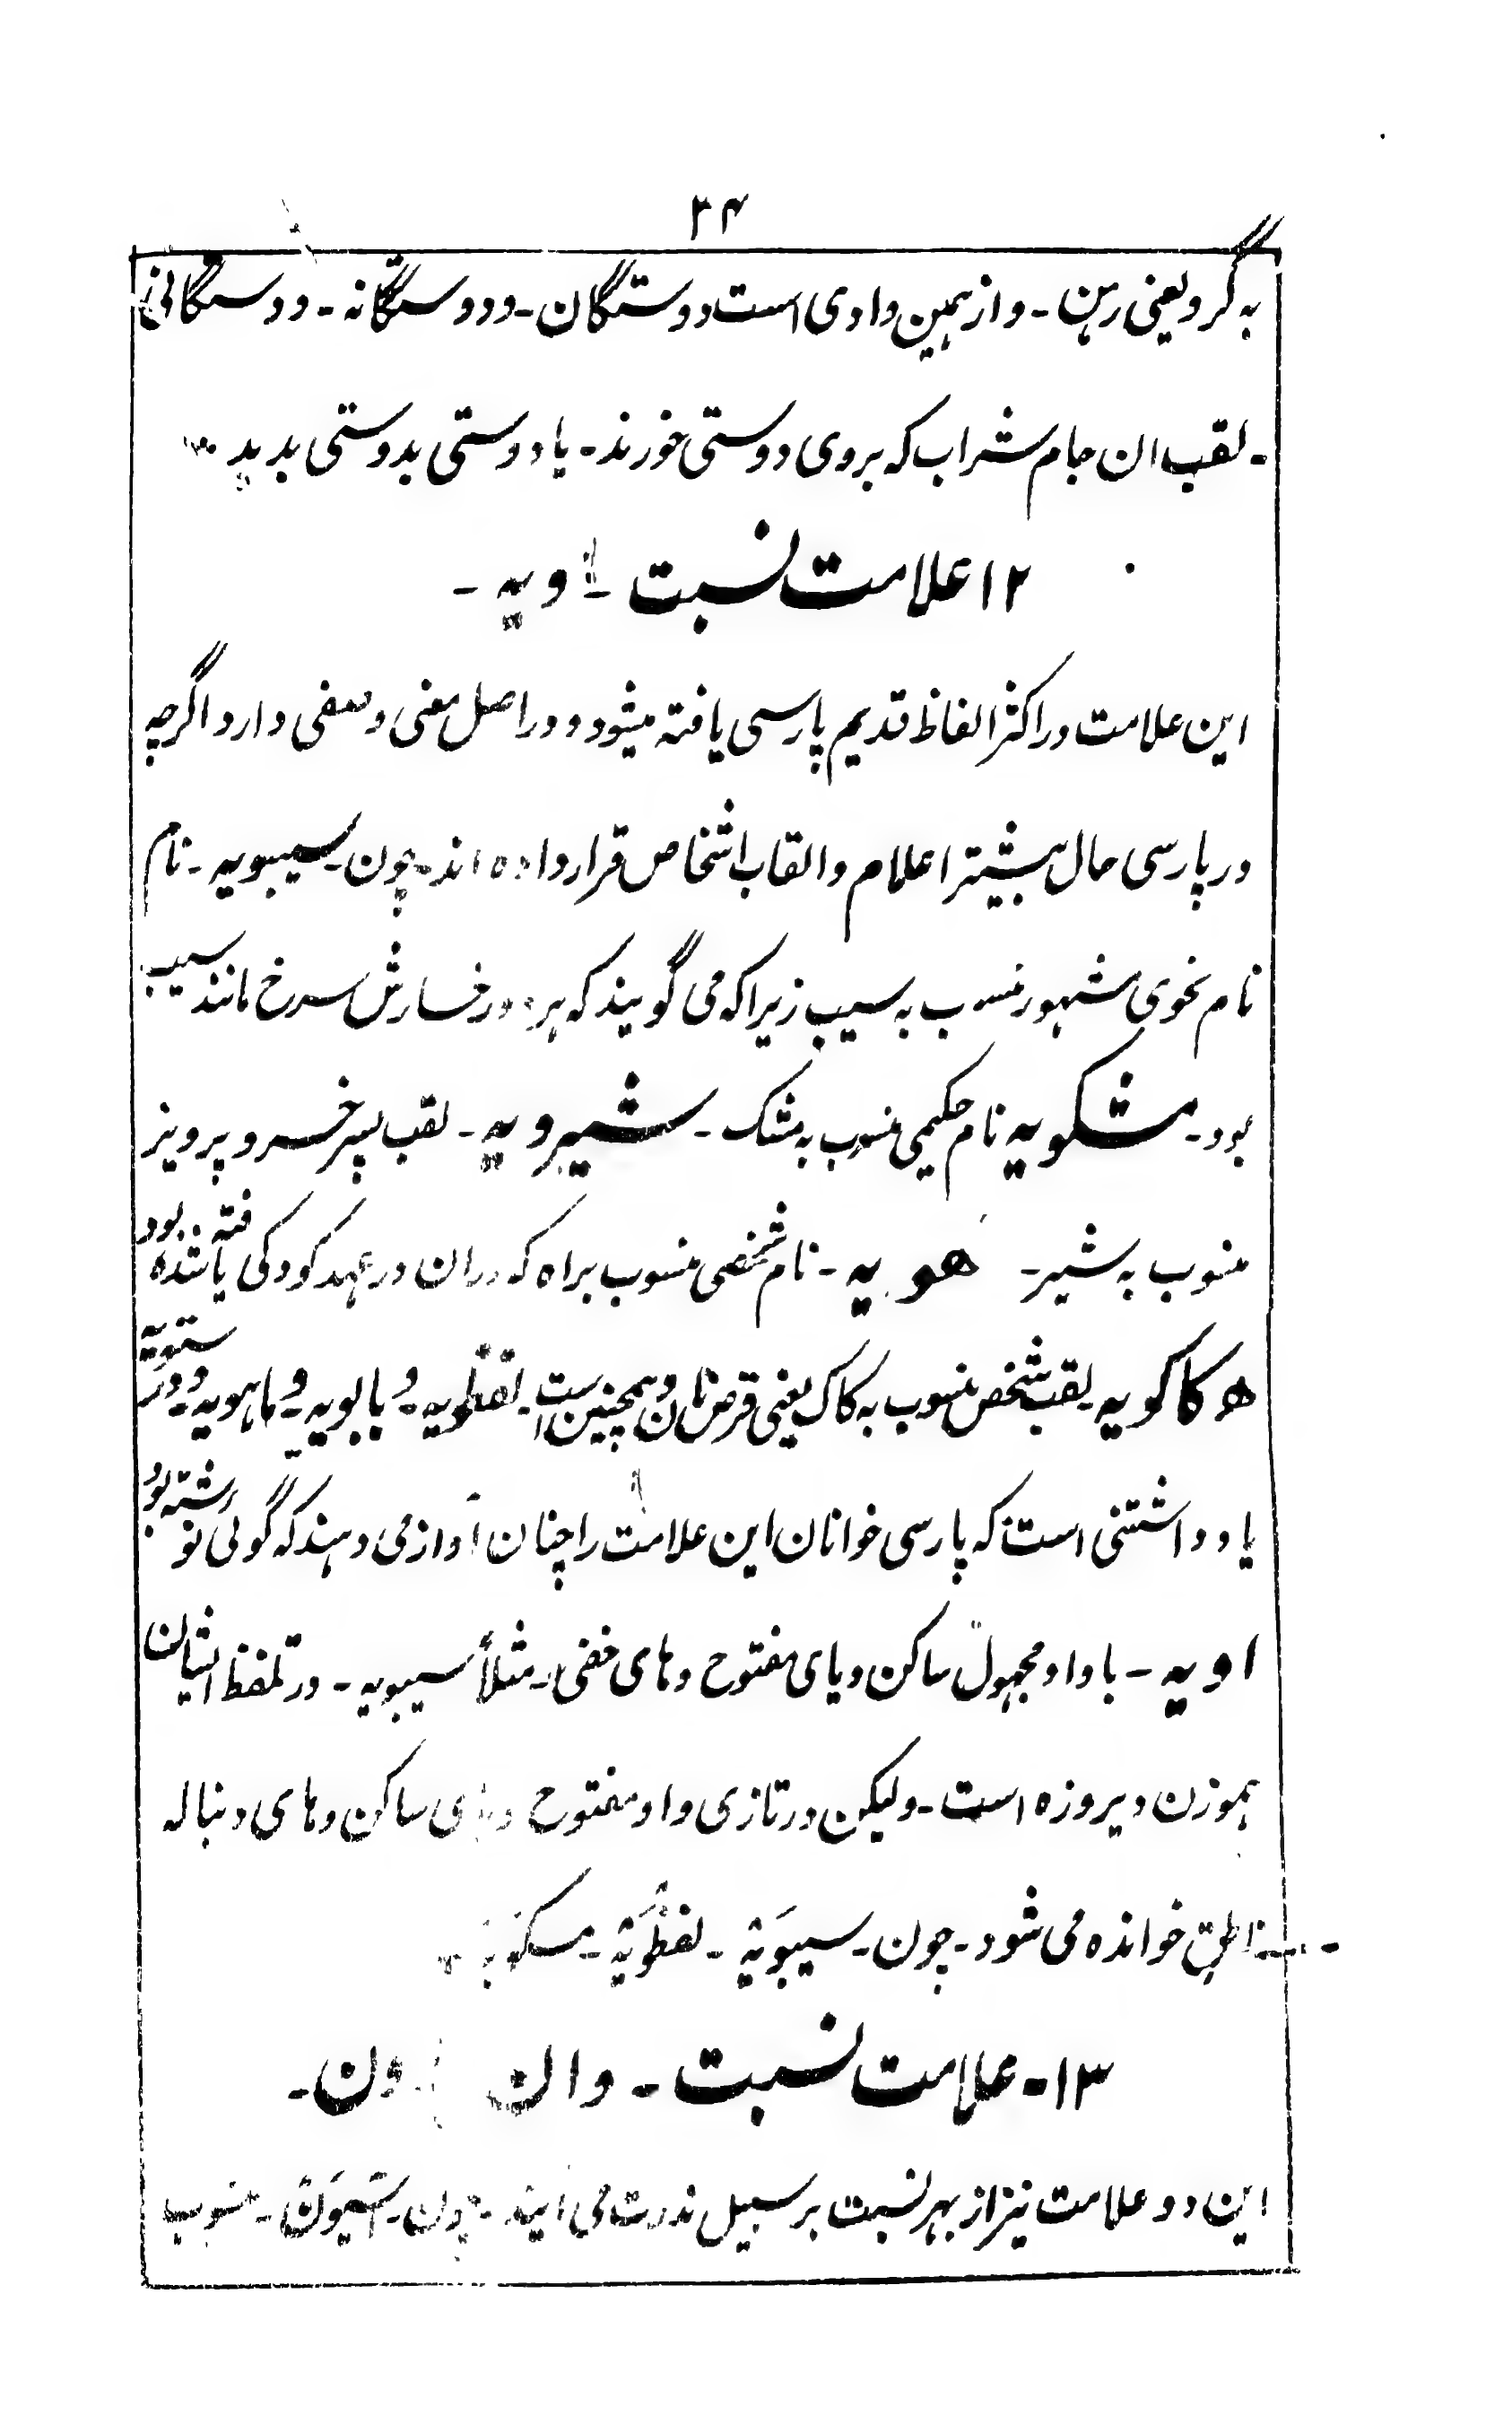 ۲۴
به گرو یعنی رہن - و از ہمین وادی است دوستگان - و دوستگانه - و دوستگانی
- لقب ان جام شراب که بروی دوستی خورند - یا دوستی بدوستی بدہد
۱۲ علامت نسبت - ویه -
این علامت در اکثر الفاظ قدیم پارسی یافته میشود و در اصل معنی وصفی دارد اگرچه
در پارسی حال بیشتر اعلام و القاب اشخاص قرار داده اند - چون - سیبویه - نام
نام نحوی مشہور منسوب به سیب زیرا که می گویند که ہر دو رخسارش سرخ مانند سیب
بود - مشکویه نام حکیمی منسوب به مشک - شیرویه - لقب پسر خسرو پرویز
منسوب به شیر - هویه - نام شخصی منسوب براه که دران در عہد کودکی یافته شده بود
ه کاکویه - لقب شخص منسوب به کاک یعنی قرص نان و ہمچنین است - نفطویه - و بابویه - و ماہویه - و درستویه
یاد داشتنی است که پارسی خوانان این علامت را چنان آواز می دہند که گوئی نوشته بود
اویه - با واو مجہول ساکن و یای مفتوح و های خفی - مثلاً سیبویه - در تلفظ ایشان
ہموزن دیروزه است - ولیکن در تازی واو مفتوح و یای ساکن و های دنباله
ناطق خوانده می شود - چون - سیبَویْه - نفطَویْه - مسکَویْه
۱۳ - علامت نسبت - وان - ون -
این دو علامت نیز از بہر نسبت بر سبیل ندرت می آیند - چون - استیون - منسوب